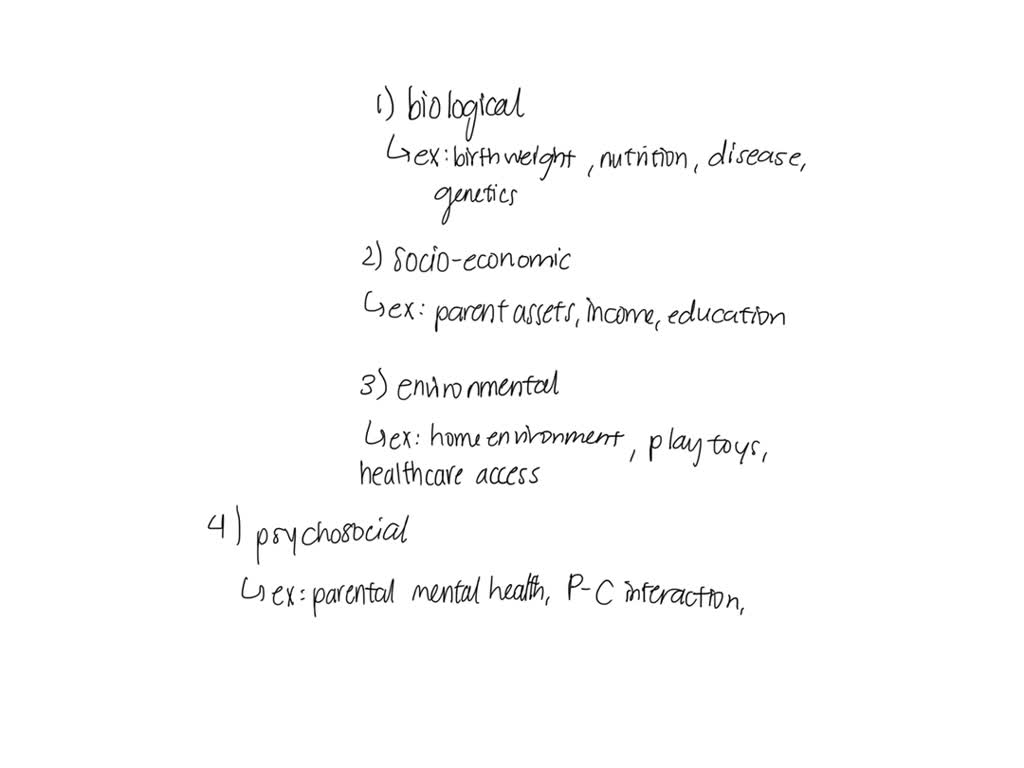 1) biological
↳ex: birthweight, nutrition, disease,
genetics
2) socio-economic
↳ex: parent assets, income, education
3) environmental
↳ex: home environment, play toys,
healthcare access
4) psychosocial
↳ex: parental mental health, P-C interaction,